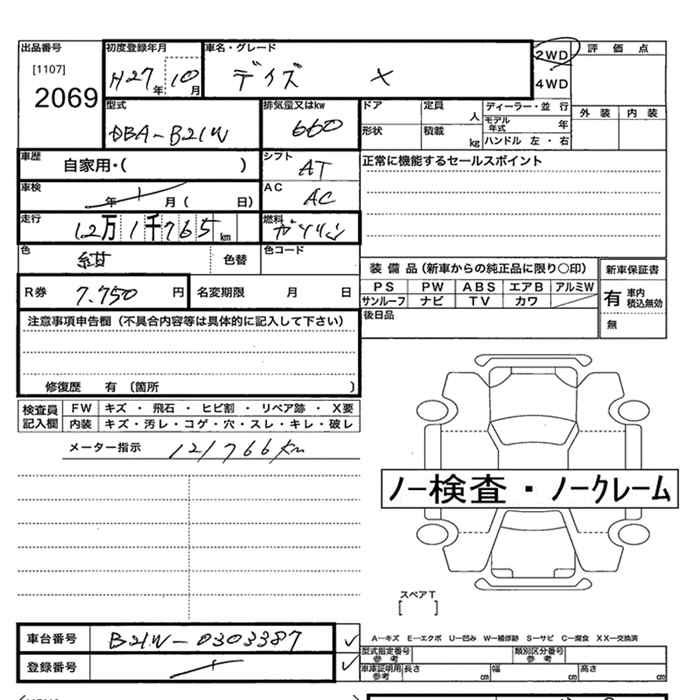 出品番号 初度登録年月 車名・グレード 2WD 評価点
[1107] H27年 10月 デイズ X 4WD
2069
型式 排気量又はkw ドア 定員 人 ディーラー・並 行 外装 内装
DBA-B21W 660 モデル年式 年
形状 積載 kg ハンドル 左・右
車歴 自家用・( ) シフト AT 正常に機能するセールスポイント
車検 年 月( 日) AC AC
走行 12万1千765km 燃料 ガソリン
色 紺 色替 色コード
装備品(新車からの純正品に限り○印) 新車保証書
R券 7.750 円 名変期限 月 日 PS PW ABS エアB アルミW 有 車内 積込無効
サンルーフ ナビ TV カワ
注意事項申告欄(不具合内容等は具体的に記入して下さい) 後日品 無
修復歴 有(箇所 )
検査員記入欄 FW キズ・飛石・ヒビ割・リペア跡・X要
内装 キズ・汚レ・コゲ・穴・スレ・キレ・破レ
メーター指示 121766km
ノー検査・ノークレーム
スペアT
[ ]
車台番号 B21W-0303387 A-キズ E-エクボ U-凹み W-補修跡 S-サビ C-腐食 XX-交換済
型式指定番号 参考 類別区分番号 参考
登録番号 車庫証明用 参考 長さ cm 幅 cm 高さ cm